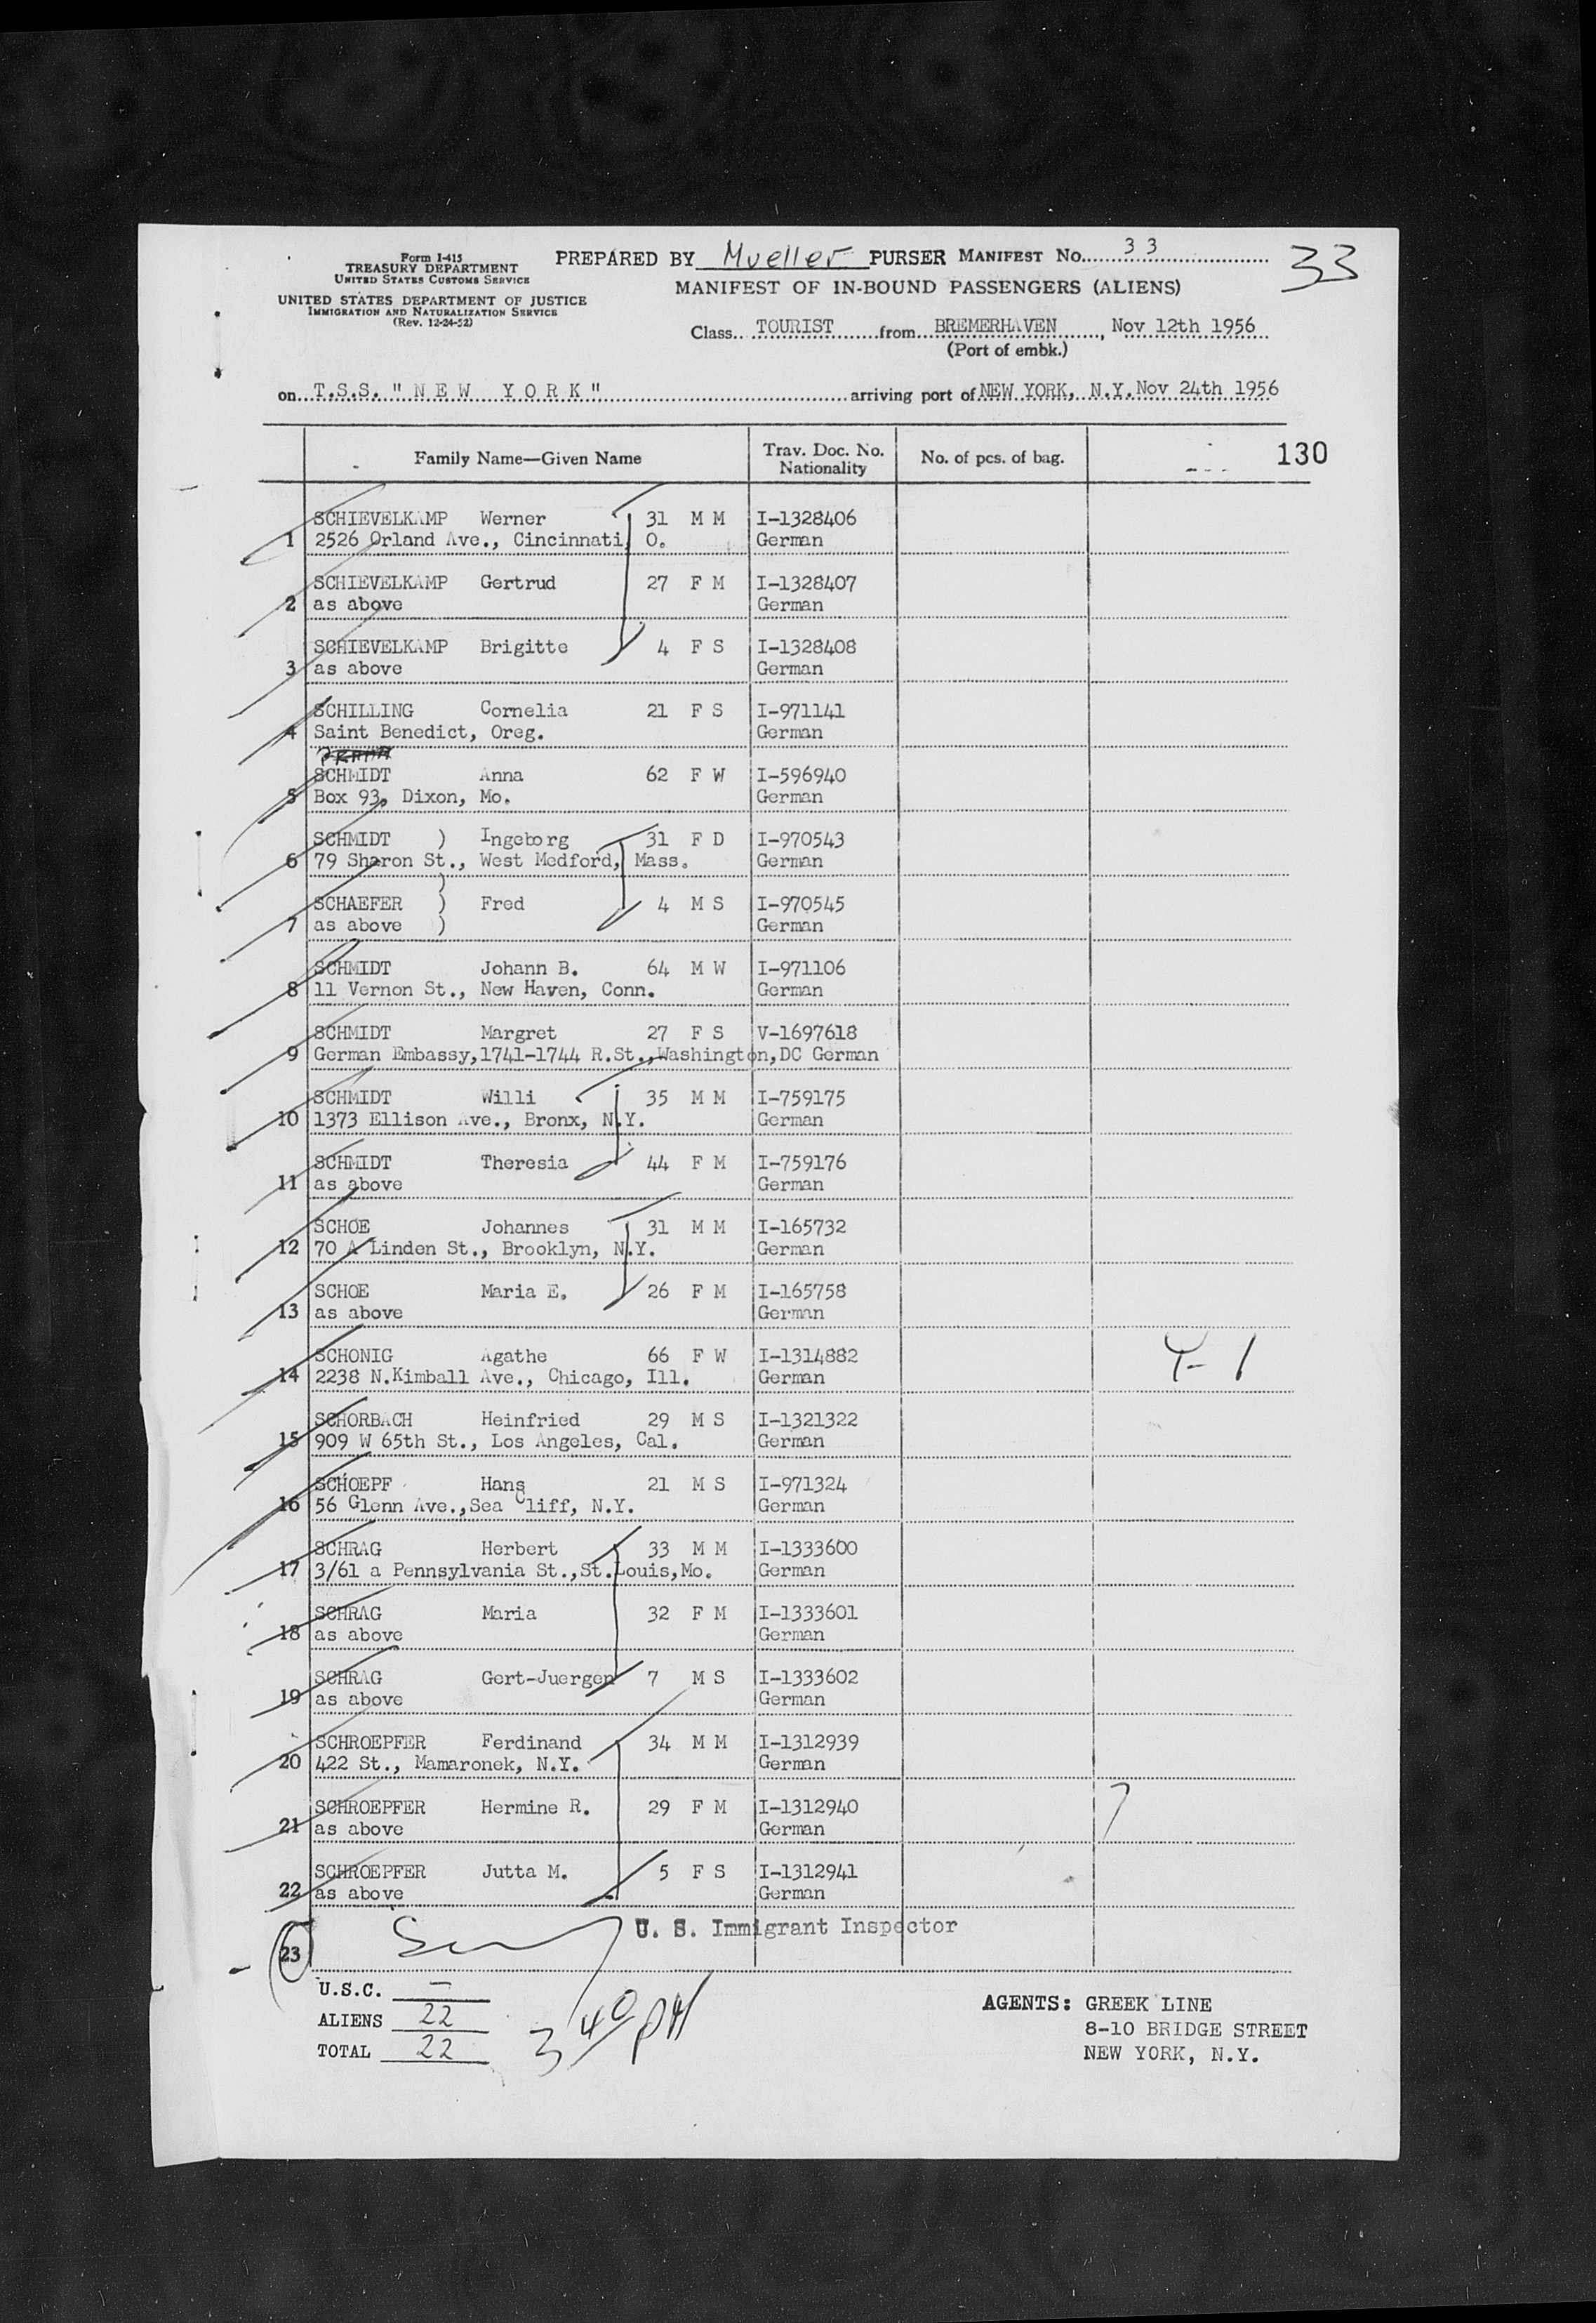 Form I-415
TREASURY DEPARTMENT
UNITED STATES CUSTOMS SERVICE
UNITED STATES DEPARTMENT OF JUSTICE
IMMIGRATION AND NATURALIZATION SERVICE
(Rev. 12-24-52)
PREPARED BY Mueller PURSER MANIFEST No. 33
33
MANIFEST OF IN-BOUND PASSENGERS (ALIENS)
Class TOURIST from BREMERHAVEN, Nov 12th 1956
(Port of embk.)
on T.S.S. "NEW YORK" arriving port of NEW YORK, N.Y. Nov 24th 1956
Family Name—Given Name Trav. Doc. No. Nationality No. of pcs. of bag. 130
SCHIEVELKAMP Werner 31 M M I-1328406
1 2526 Orland Ave., Cincinnati, O. German
SCHIEVELKAMP Gertrud 27 F M I-1328407
2 as above German
SCHIEVELKAMP Brigitte 4 F S I-1328408
3 as above German
SCHILLING Cornelia 21 F S I-971141
4 Saint Benedict, Oreg. German
SCHMIDT Anna 62 F W I-596940
5 Box 93, Dixon, Mo. German
SCHMIDT ) Ingeborg 31 F D I-970543
6 79 Sharon St., West Medford, Mass. German
)
SCHAEFER ) Fred 4 M S I-970545
7 as above ) German
SCHMIDT Johann B. 64 M W I-971106
8 11 Vernon St., New Haven, Conn. German
SCHMIDT Margret 27 F S V-1697618
9 German Embassy,1741-1744 R.St.,Washington,DC German
SCHMIDT Willi 35 M M I-759175
10 1373 Ellison Ave., Bronx, N.Y. German
SCHMIDT Theresia 44 F M I-759176
11 as above German
SCHOE Johannes 31 M M I-165732
12 70 A Linden St., Brooklyn, N.Y. German
SCHOE Maria E. 26 F M I-165758
13 as above German
SCHONIG Agathe 66 F W I-1314882
14 2238 N.Kimball Ave., Chicago, Ill. German
SCHORBACH Heinfried 29 M S I-1321322
15 909 W 65th St., Los Angeles, Cal. German
SCHOEPF Hans 21 M S I-971324
16 56 Glenn Ave.,Sea Cliff, N.Y. German
SCHRAG Herbert 33 M M I-1333600
17 3/61 a Pennsylvania St.,St.Louis,Mo. German
SCHRAG Maria 32 F M I-1333601
18 as above German
SCHRAG Gert-Juergen 7 M S I-1333602
19 as above German
SCHROEPFER Ferdinand 34 M M I-1312939
20 422 St., Mamaronek, N.Y. German
SCHROEPFER Hermine R. 29 F M I-1312940
21 as above German
SCHROEPFER Jutta M. 5 F S I-1312941
22 as above German
U. S. Immigrant Inspector
23
U.S.C. —
ALIENS 22
TOTAL 22
3 40 PM
AGENTS: GREEK LINE
8-10 BRIDGE STREET
NEW YORK, N.Y.